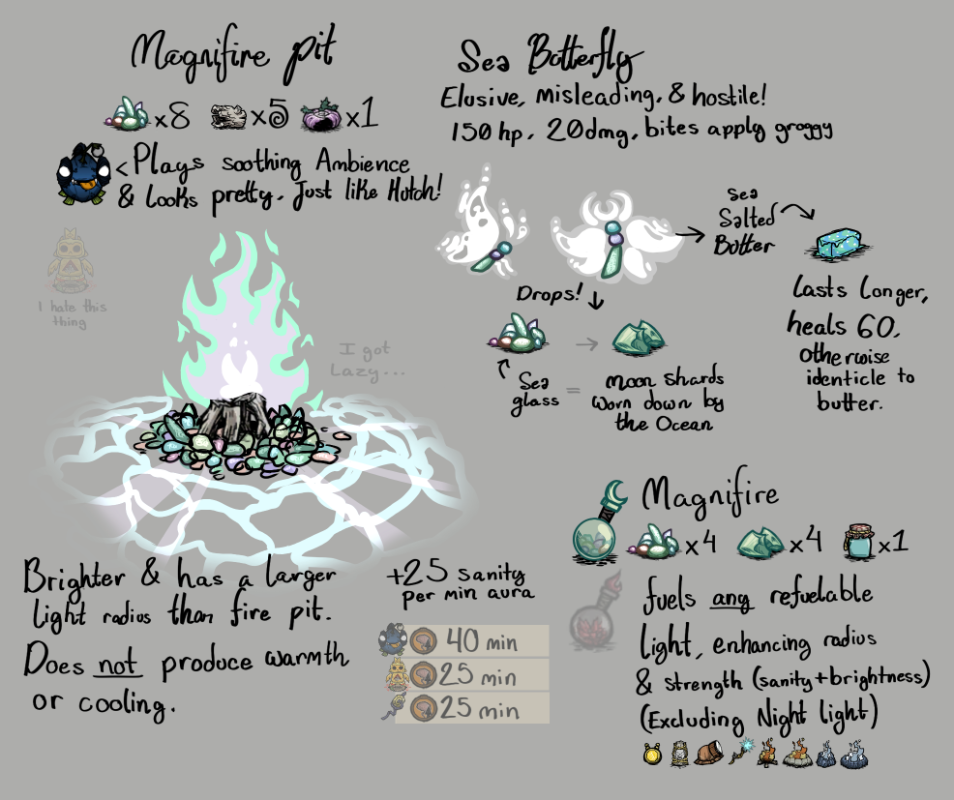 Magnifire pit
x8 x5 x1
< Plays soothing Ambience
& looks pretty, Just like Hutch!
I hate this
thing
I got
Lazy...
Brighter & has a larger
light radius than fire pit.
Does not produce warmth
or cooling.
+25 sanity
per min aura
40 min
25 min
25 min
Sea Butterfly
Elusive, misleading, & hostile!
150 hp, 20dmg, bites apply groggy
Sea
Salted
Butter
Lasts Longer,
heals 60,
otherwise
identicle to
butter.
Drops!
Sea
glass
=
Moon Shards
Worn down by
the Ocean
Magnifire
x4 x4 x1
fuels any refuelable
light, enhancing radius
& strength (sanity+brightness)
(Excluding Night light)